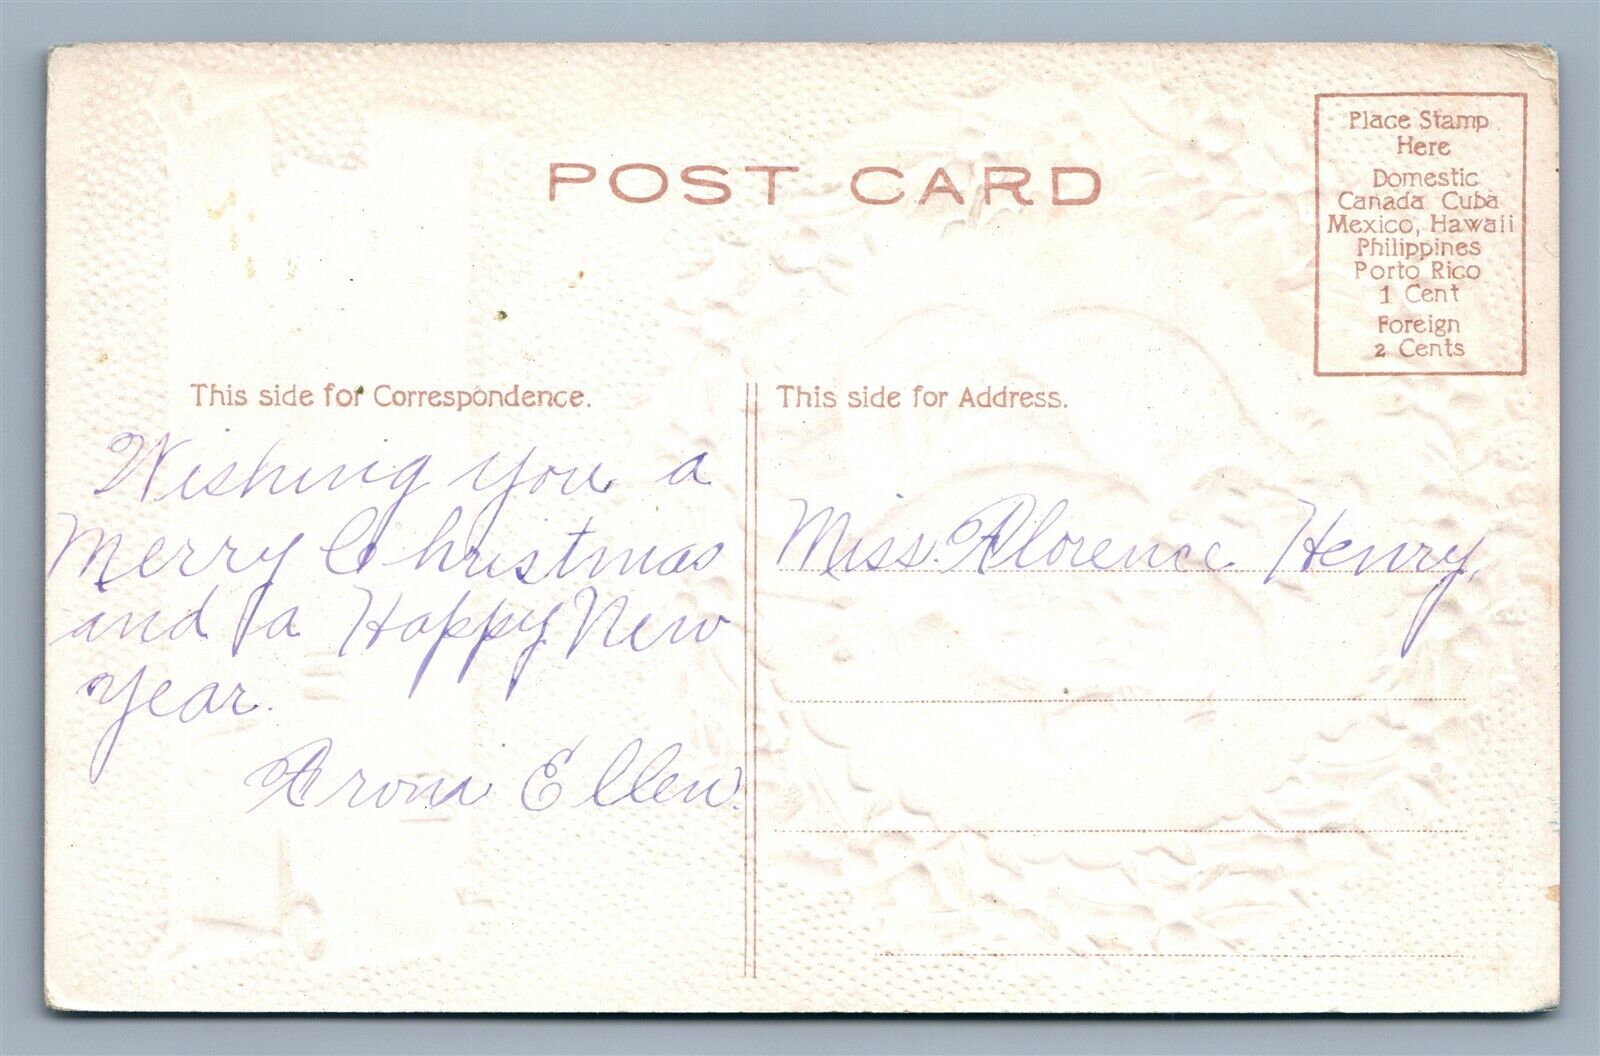 POST CARD
Place Stamp
Here
Domestic
Canada Cuba
Mexico, Hawaii
Philippines
Porto Rico
1 Cent
Foreign
2 Cents
This side for Correspondence.
Wishing you a
Merry Christmas
and a Happy New
Year.
From Ellen.
This side for Address.
Miss. Florence Henry.